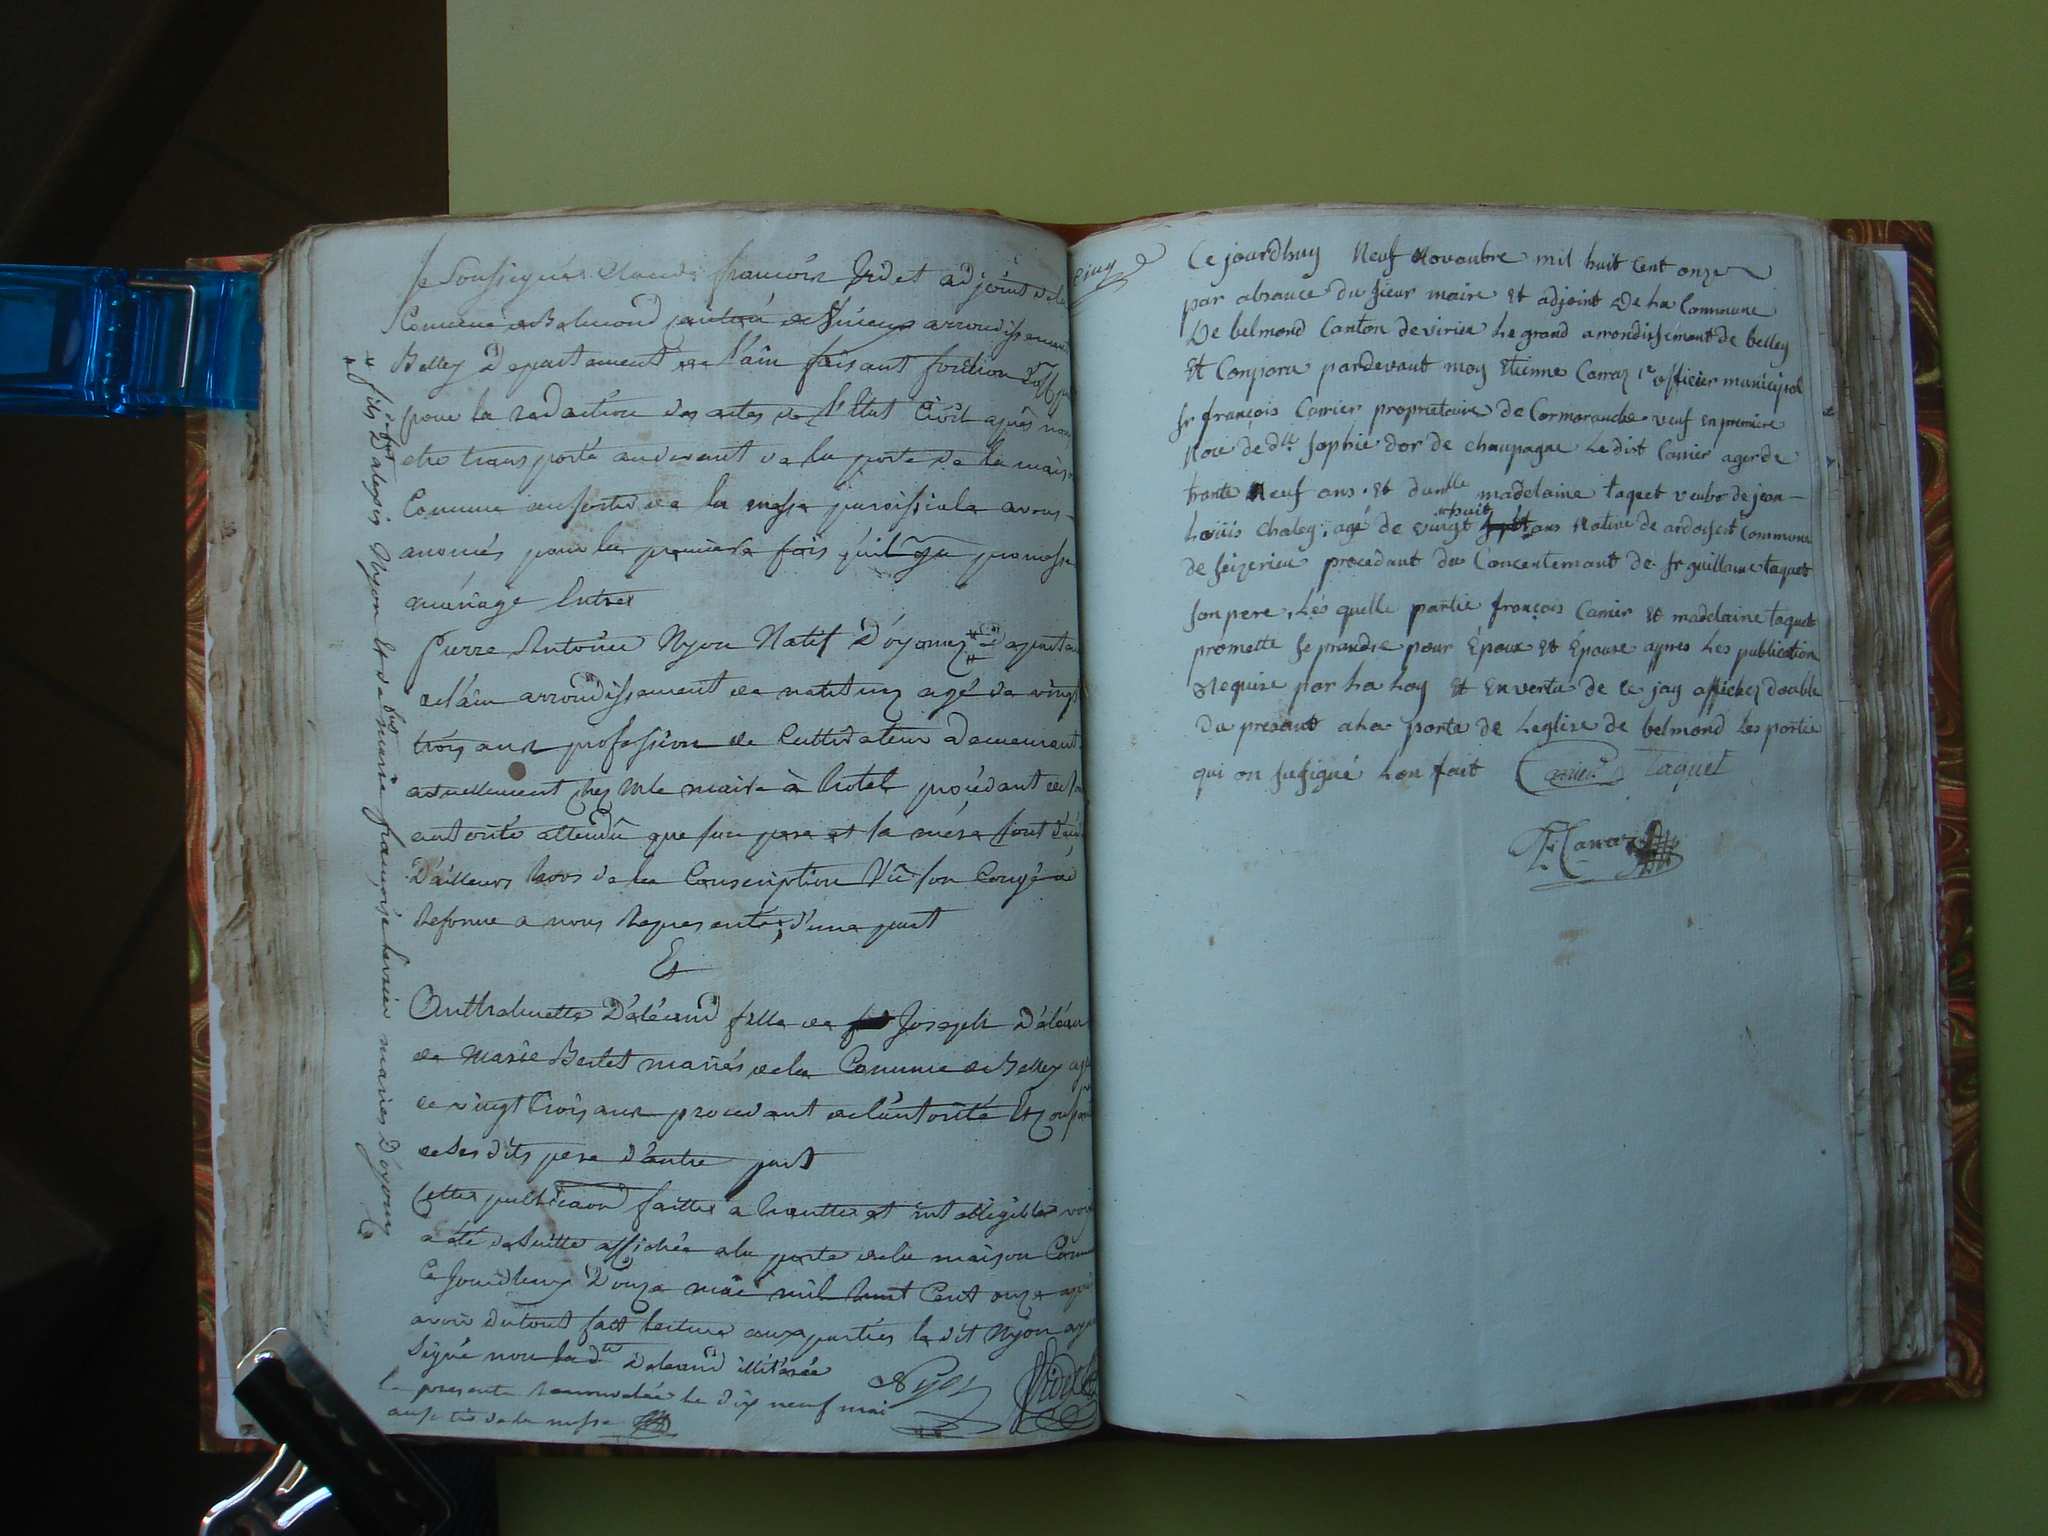 Je Soussigné Claude francoin Jidet adjoint de la
Commune de Belmond canton de Virieux arrondissement
Belley Département de l'ain faisant fonction
pour la redaction des actes de l'Etat Civil après nous
etre transporté audevant de la porte de la maison
Commune ausortir de la messe paroissiale avons
anoncés pour la premiere fois qu'il y a promesse
mariage Entre
Pierre Antoine Nyon Natif D'oyonnaz Departem
de l'ain arrondissement de nantua agé de vingt
trois ans profession de Cultivateur Demeurant
actuellement chez Mr le maire à hotel procédant de son
autorité attendu que son pere et sa mére sont décé
D'ailleurs hors de la Conscription Vû son Congé de
Reforme a nous Representé; d'une part
Et
Anthelmette Déléand fille de Joseph Déléan
de Marie Bertet mariés de la Commune de Belley agé
de vingt trois ans procedant de l'autorité Et
de ses dits pere d'autre part
Cette publication faitte a hautte et intelligible voix
a été de suitte affichée a la porte de la maison Comm
Ce Jourdhuy Douze mai mil huit Cent onze après
avoir dutout fait lecture aux parties le dit Nyon ayant
Signé non la dte Deleand illitérée
la presente Renouvelée le dix neuf mai
ausortir de la messe
Nyon Jidet
fils de fut D'alexis Nyon Et de fut marie francoise hervier mariés D'oyonn
Cinq
Ce jourdhuy Neuf Novanbre mil huit Cent onze
par absance du sieur maire Et adjoint De La Commune
De belmond Canton de virieu Le grand arrondissement de belley
Et Conparu pardevant moy Etienne Carraz 1e officier municipal
Sr françois Carrier proprietaire de Cormoranche veuf En premiere
Noce de dlle Sophie dor de chanpagne Ledit Carrier ager de
trante Neuf ans. Et dunelle madelaine taquet veube de jean
Louïs Chaley, agé de vingt huit ans Native de ardosset Commune
de Seizerieu procedant du Concentemant de Sr guillaume taquet
Son pere, Lés quelle partie françois Carrier Et madelaine taquet
promette Se prandre pour Époux Et Épouse apres Les publication
Requise par La Loy Et En vertu de ce jay affichez double
du presant a La porte de Leglise de belmond Les partie
qui on susigné Lon fait Carrier taquet
Carraz